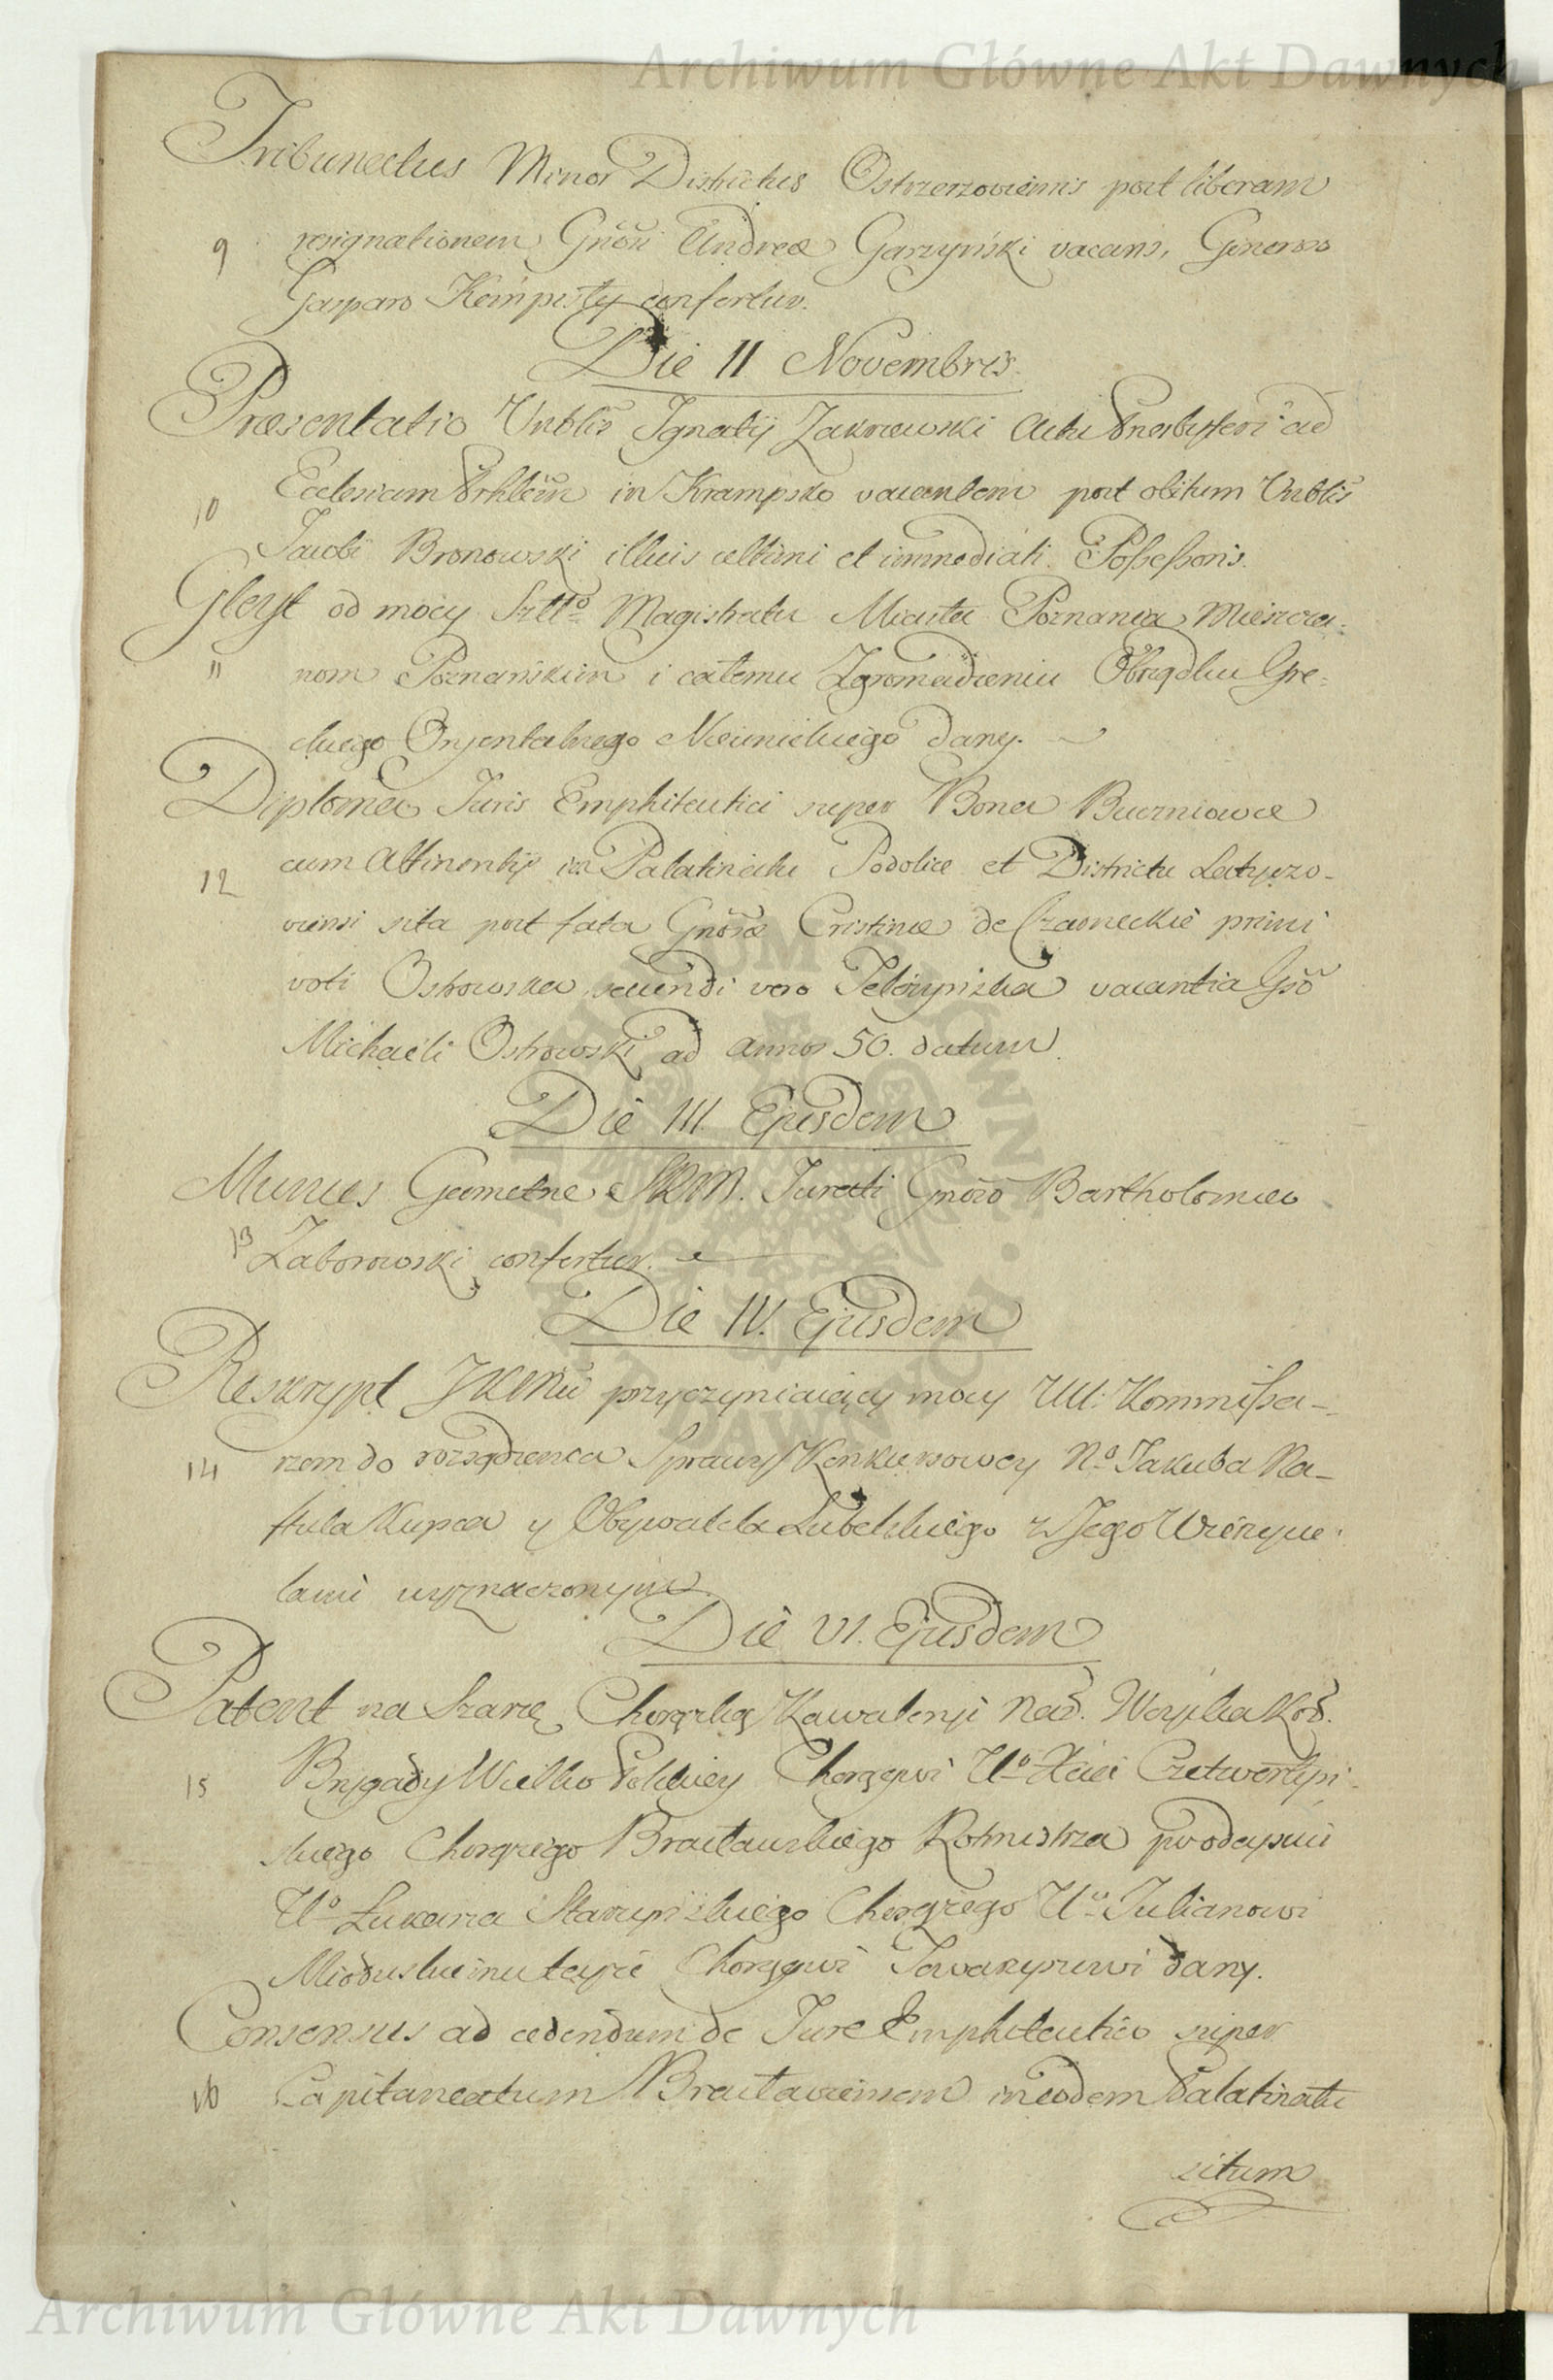 Archiwum Główne Akt Dawnych
Tribunatus Minor Districtus Ostrzeszoviensis post liberam
9 resignationem Gnosi Andreæ Garzyński vacans, Generoso
Gasparo Kempisty confertur.
Die II Novembris.
Præsentatio Vnblis Ignatij Zakrzewski Actu Presbyteri ad
10 Ecclesiam Prhlem in Krampsko vacantem post obitum Vnblis
Jacobi Bronowski illius ultimi et immediati Possessoris.
Gleyt od mocy Szltto Magistratu Miasta Poznania Mieszcza-
11 nom Poznanskim i całemu Zgromadzeniu Obrządku Gre=
ckiego Oryentalnego Nieunickiego dany.
Diploma Juris Emphiteutici super Bona Buczniowce
12 cum Attinentijs in Palatinatu Podoliæ et Districtu Latyczo-
viensi sita post fata Gnosæ Cristinæ de Czarneckie primi
voti Ostrowska secundi vero vacantia Gso
Michaeli Ostrowski ad annos 50. datum.
Die III. Ejusdem
Munus Geometræ SRM. Jurati Gnoso Bartholomæo
13 Zaborowski confertur.
Die IV. Ejusdem
Reskrypt JKMci przyczyniaiący mocy UU: Kommissa-
14 rzom do rozsądzenia Sprawy Konkursowey No Jakuba Na-
ftula Kupca y Obywatela Lubelskiego z Jego Wierzycie-
lami wyznaczonym.
Die VI. Ejusdem
Patent na Szarżę Chorążką Kawaleryi Nar. Woyska Kor.
15 Brygady Wielko Polskiey Chorągwi Uo Xcia Czetwertyń-
skiego Chorążego Bracławskiego Rotmistrza po odeysciu
Uo Łukasza Skarzyńskiego Chorążego Uu Julianowi
Mioduskiemu teyże Chorągwi Towarzyszowi dany.
Consensus ad cedendum de Jure Emphiteutico super
16 Capitaneatum Braclaviensem in eodem Palatinatu
situm
Archiwum Główne Akt Dawnych